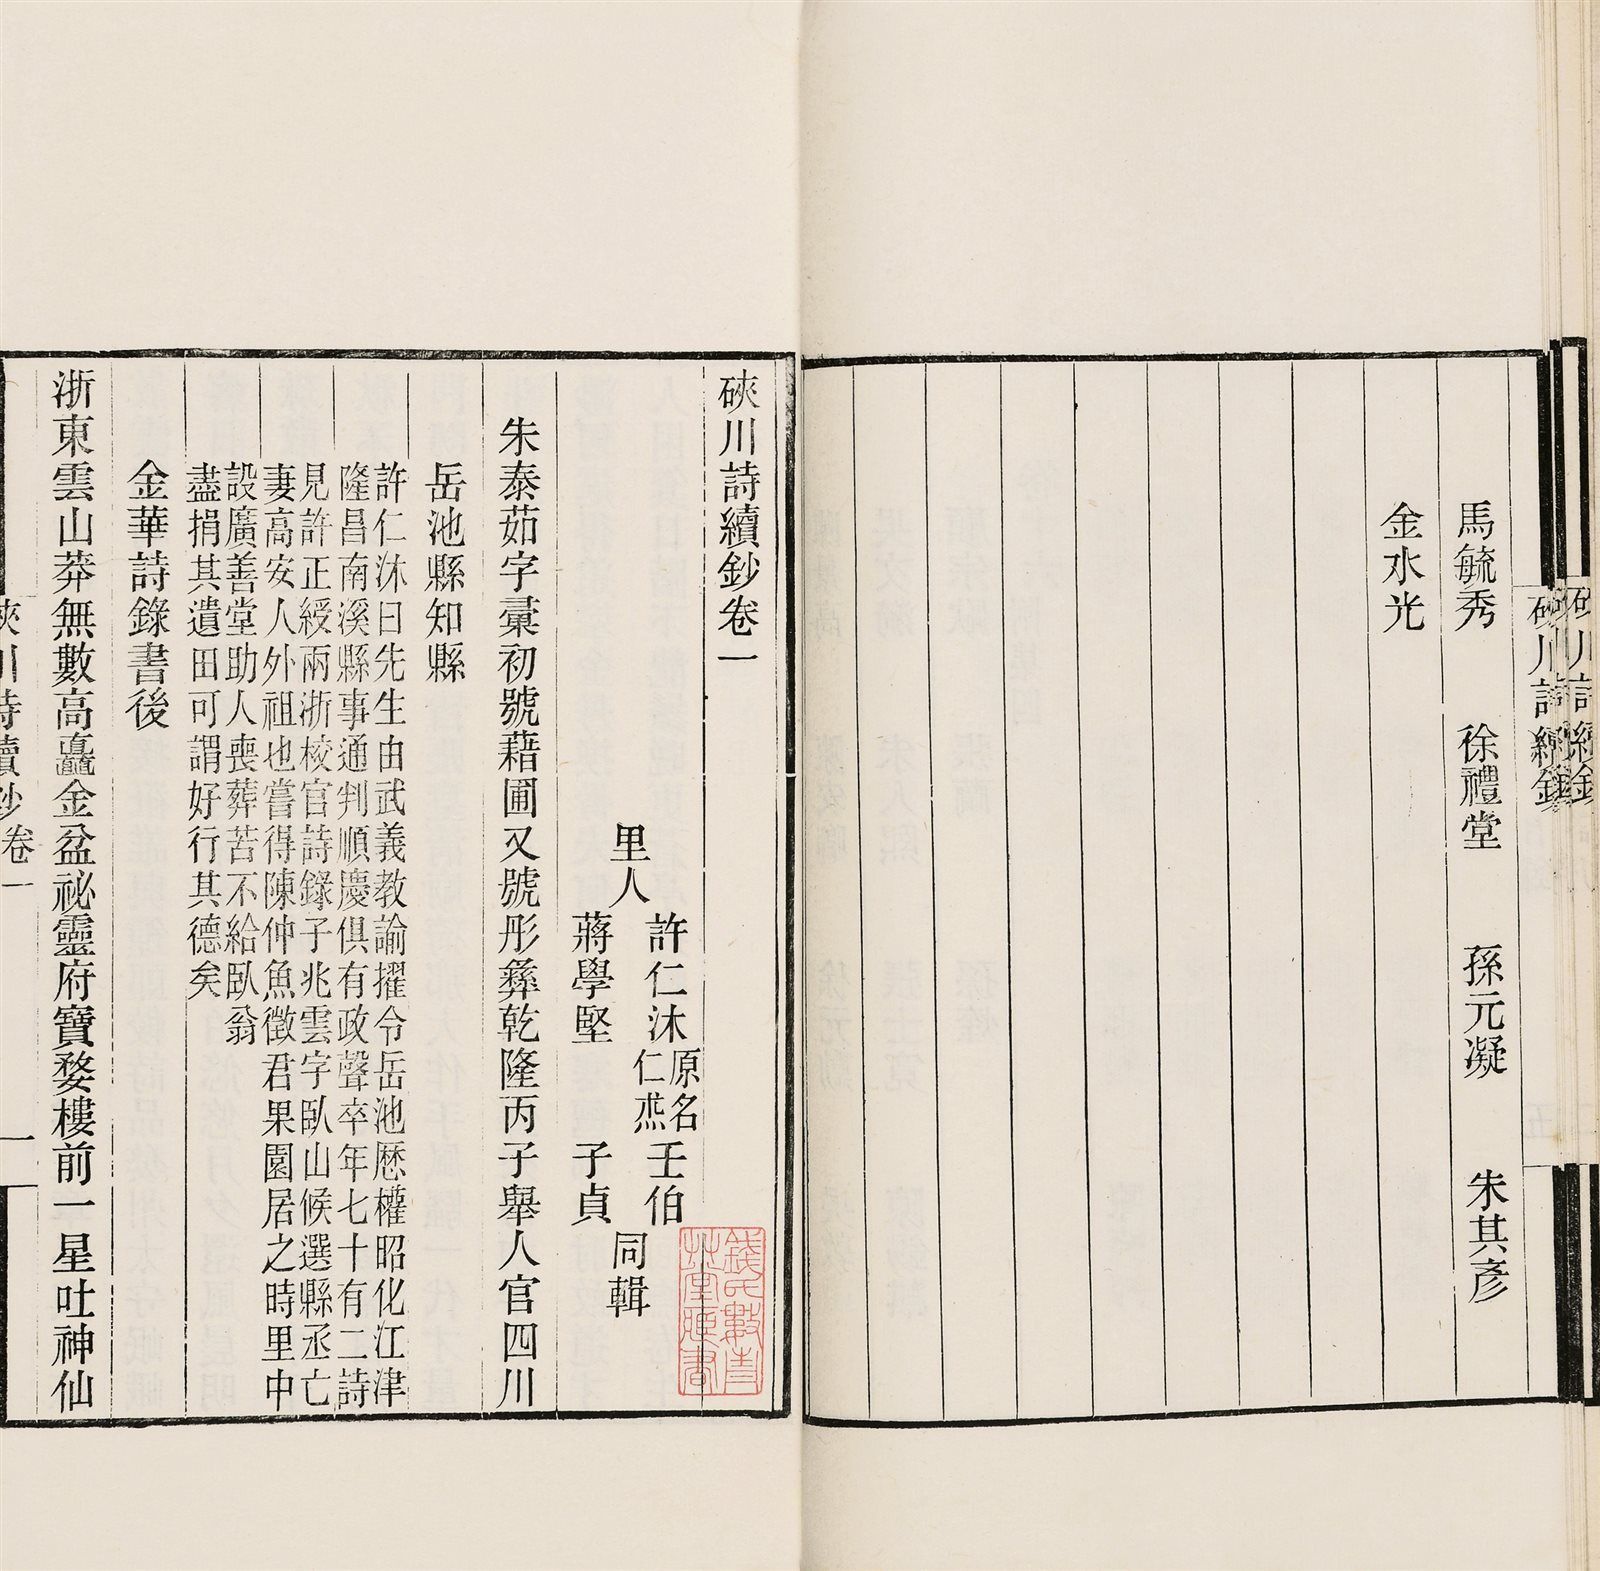 馬毓秀 徐禮堂 孫元凝 朱其彥
金水光
硤川詩續鈔
五
硤川詩續鈔卷一
里人 許仁沐原名仁烝壬伯 蔣學堅子貞 同輯
朱泰茹字彙初號藉圃又號彤彝乾隆丙子舉人官四川
岳池縣知縣
許仁沐曰先生由武義教諭擢令岳池歷權昭化江津
隆昌南溪縣事通判順慶俱有政聲卒年七十有二詩
見許正綬兩浙校官詩錄子兆雲字臥山候選縣丞亡
妻高安人外祖也嘗得陳仲魚徵君果園居之時里中
設廣善堂助人喪葬苦不給臥翁
盡捐其遺田可謂好行其德矣
金華詩錄書後
浙東雲山莽無數高矗金盆祕靈府寶婺樓前一星吐神仙
硤川詩續鈔卷一
一